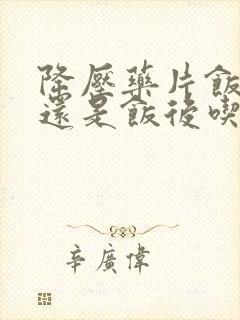 降壓藥片飯
還是飯後喫
辛廣偉